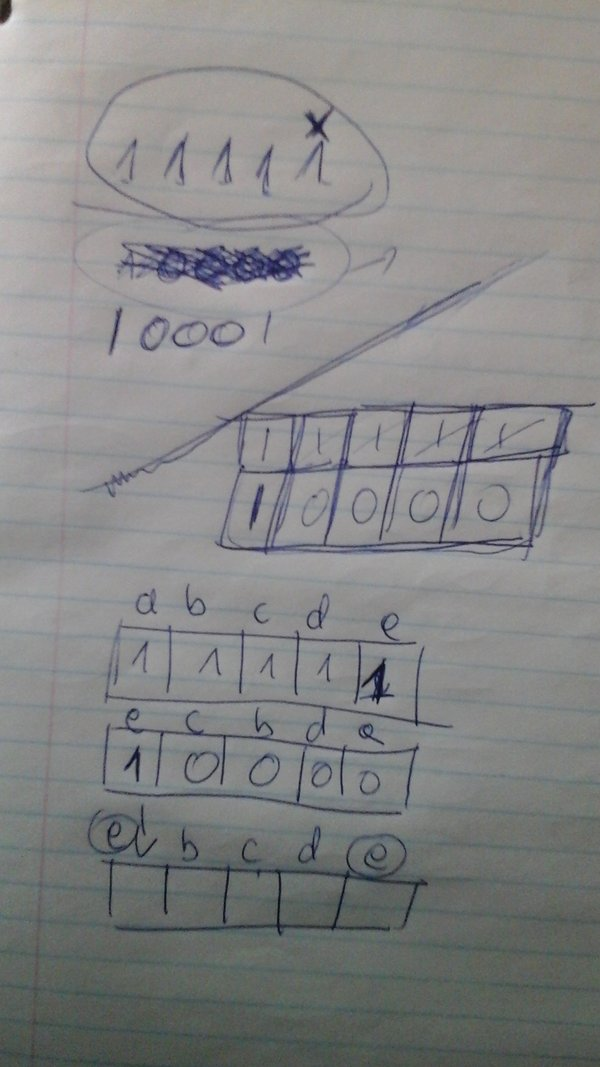 x
1 1 1 1 1
1 0 0 0 1
1 1 1 1 1
1 0 0 0 0
a b c d e
1 1 1 1 1
e c b d a
1 0 0 0 0
e b c d e